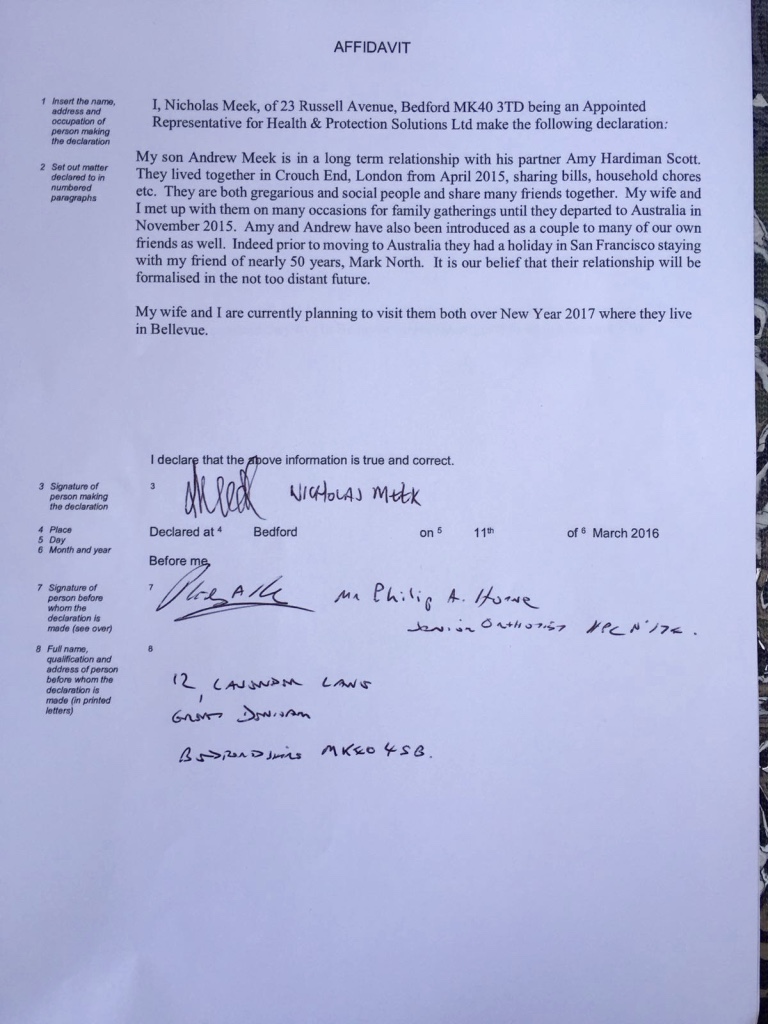 AFFIDAVIT
1 Insert the name,
address and
occupation of
person making
the declaration
I, Nicholas Meek, of 23 Russell Avenue, Bedford MK40 3TD being an Appointed
Representative for Health & Protection Solutions Ltd make the following declaration:
2 Set out matter
declared to in
numbered
paragraphs
My son Andrew Meek is in a long term relationship with his partner Amy Hardiman Scott.
They lived together in Crouch End, London from April 2015, sharing bills, household chores
etc. They are both gregarious and social people and share many friends together. My wife and
I met up with them on many occasions for family gatherings until they departed to Australia in
November 2015. Amy and Andrew have also been introduced as a couple to many of our own
friends as well. Indeed prior to moving to Australia they had a holiday in San Francisco staying
with my friend of nearly 50 years, Mark North. It is our belief that their relationship will be
formalised in the not too distant future.
My wife and I are currently planning to visit them both over New Year 2017 where they live
in Bellevue.
I declare that the above information is true and correct.
3 Signature of
person making
the declaration
3 NICHOLAS MEEK
4 Place
5 Day
6 Month and year
Declared at 4 Bedford on 5 11th of 6 March 2016
Before me,
7 Signature of
person before
whom the
declaration is
made (see over)
7 Mr Philip A.
Senior Orthotist
8 Full name,
qualification and
address of person
before whom the
declaration is
made (in printed
letters)
8
12, LANE
GREAT
BEDFORDSHIRE MK40 4SB.